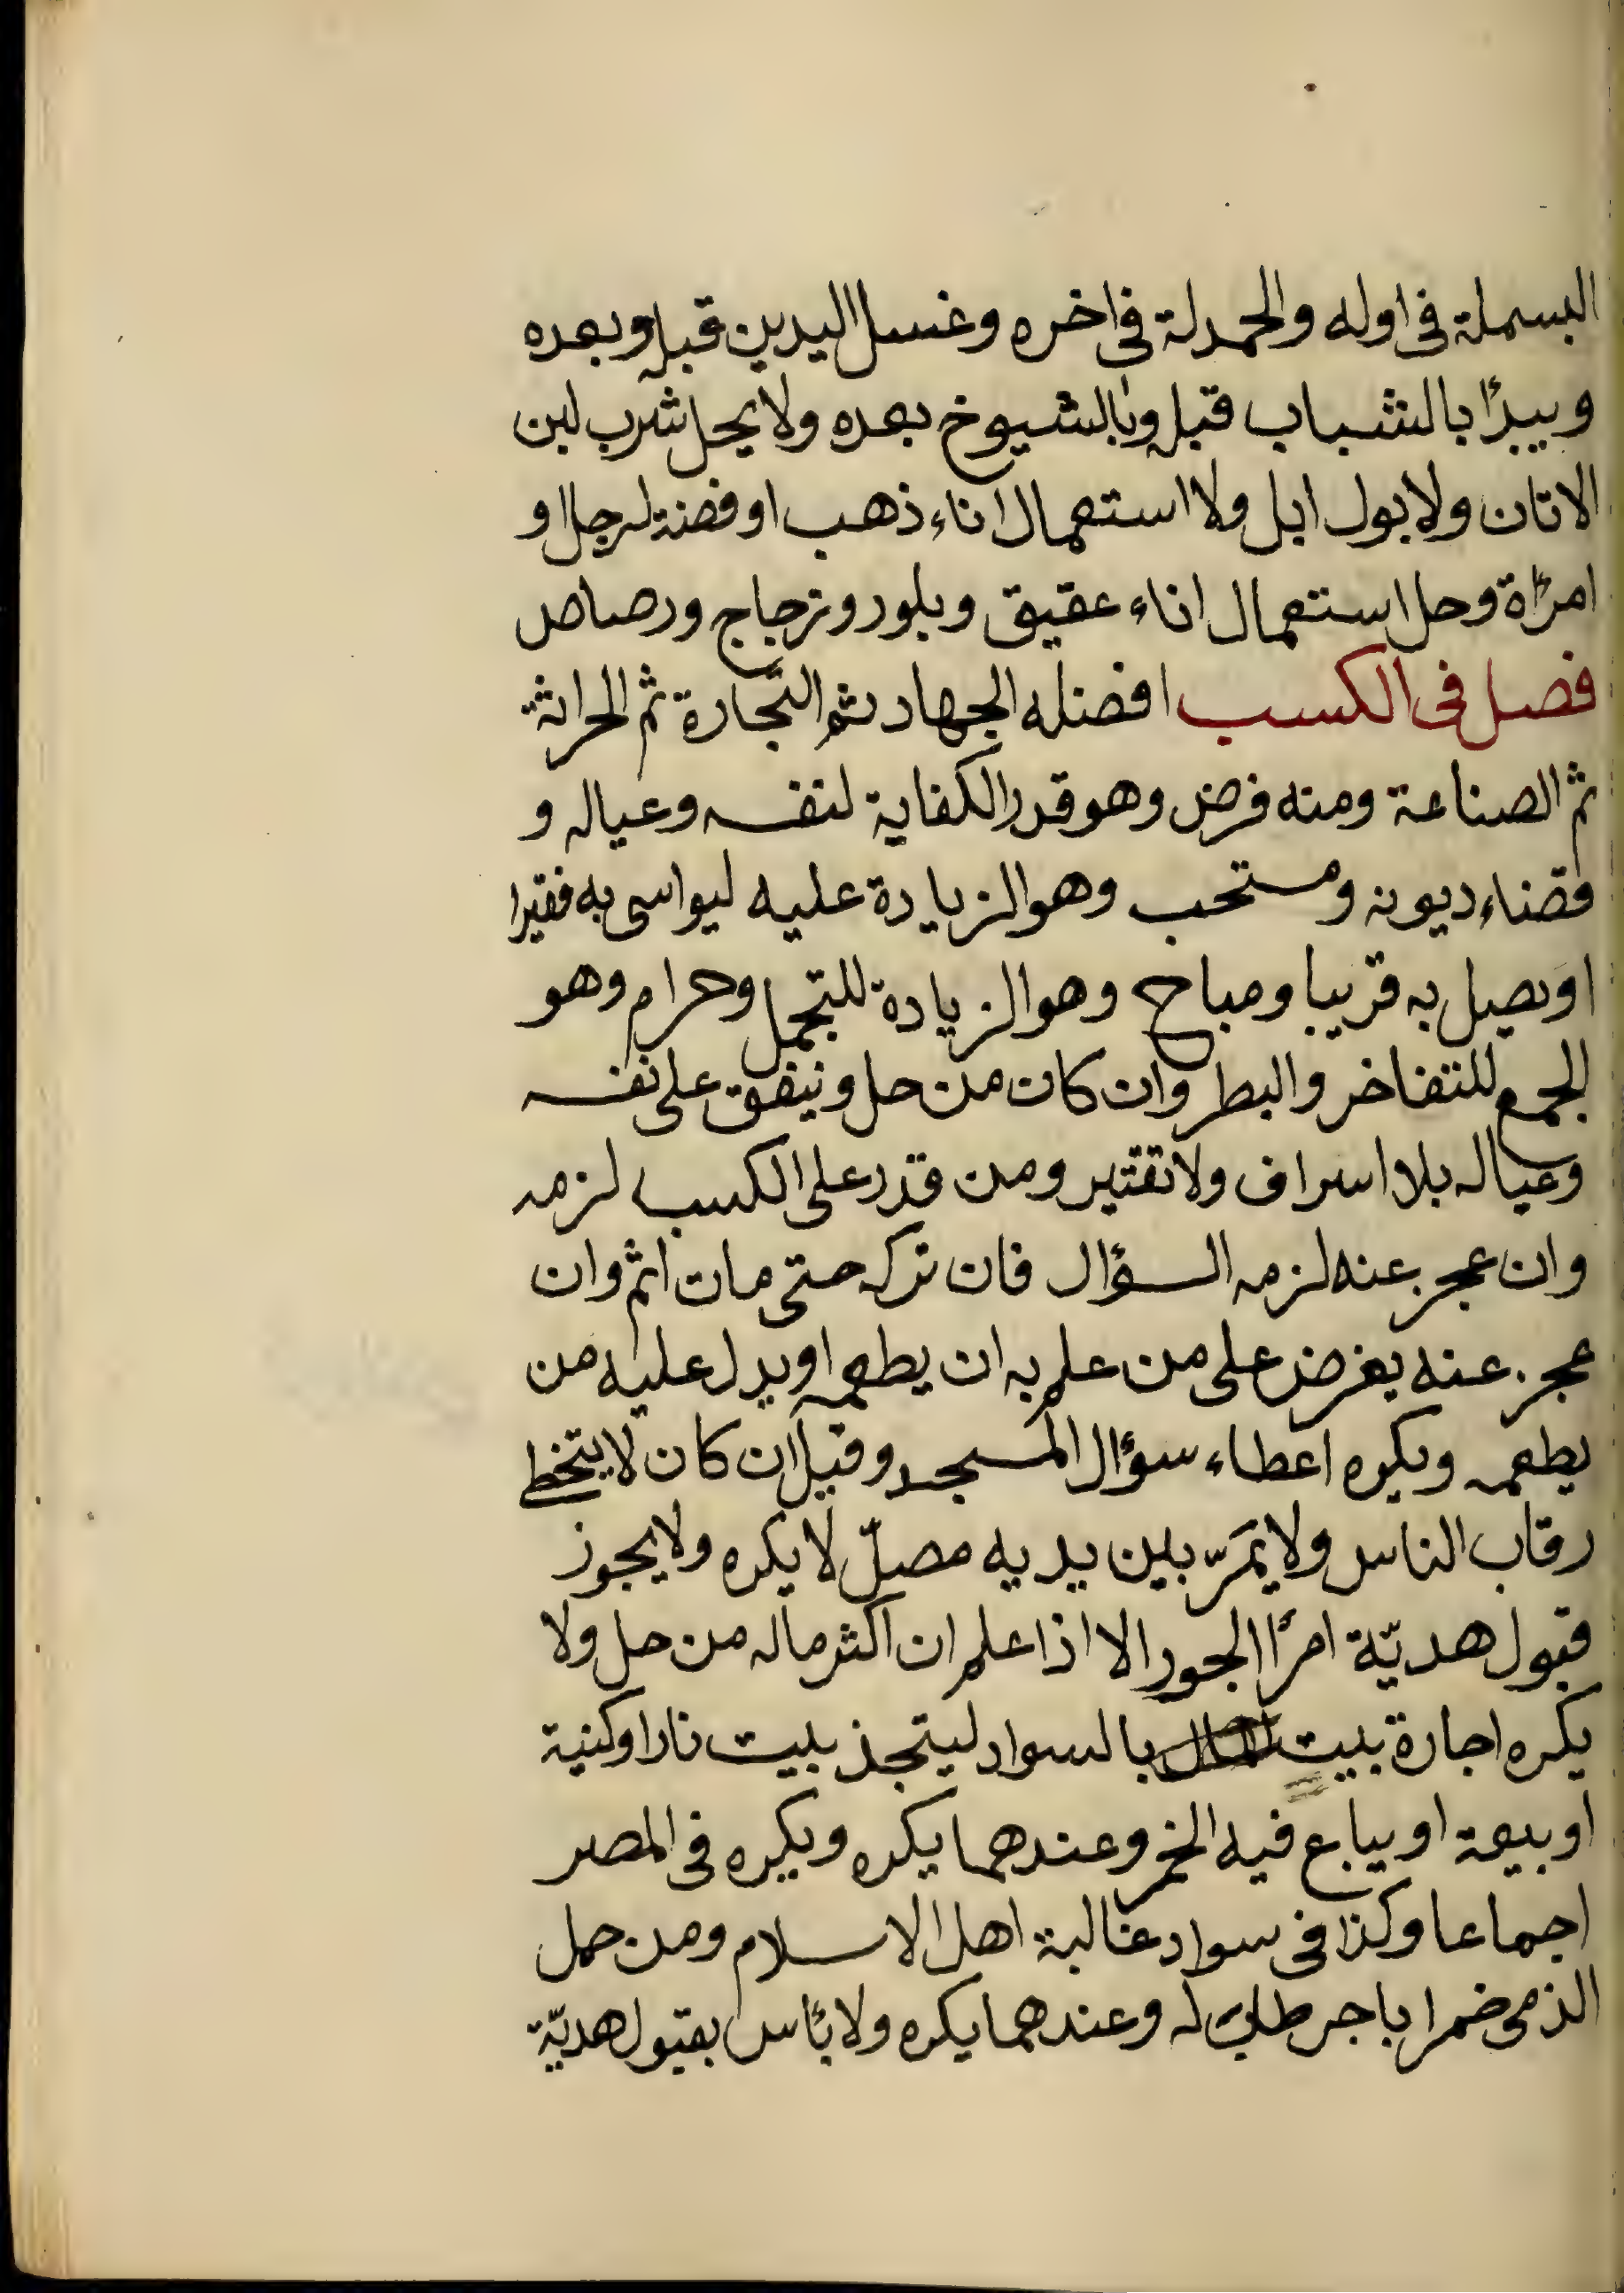 البسملة فى اوله والحمدلة فى اخره وغسل اليدين قبله وبعده
ويبدأ بالشباب قبله وبالشيوخ بعده ولا يحل شرب لبن
الاتان ولا بول ابل ولا استعمال اناء ذهب او فضة لرجل او
امرأة وحل استعمال اناء عقيق وبلور وزجاج ورصاص
فصل فى الكسب افضله الجهاد ثم التجارة ثم الحراثة
ثم الصناعة ومنه فرض وهو قدر الكفاية لنفسه وعياله و
قضاء ديونه ومستحب وهو الزيادة عليه ليواسى به فقيرا
او يصل به قريبا ومباح وهو الزيادة للتجمل وحرام وهو
الجمع للتفاخر والبطر وان كان من حل وينفق على نفسه
وعياله بلا اسراف ولا تقتير ومن قدر على الكسب لزمه
وان عجز عنه لزمه السؤال فان تركه حتى مات اثم وان
عجز عنه يفرض على من علم به ان يطعمه او يدل عليه من
يطعمه ويكره اعطاء سؤال المسجد وقيل ان كان لا يتخط
رقاب الناس ولا يمرّ بين يديه مصلّ لا يكره ولا يجوز
قبول هديّة امرأ الجور الا اذا علم ان اكثر ماله من حل ولا
يكره اجارة بيت بالسواد ليتجذ بيت نار او كنيه
او بيعة او يباع فيه الخمر وعندهما يكره ويكره فى المصر
اجماعا وكذا فى سواد غالبة اهل الاسلام ومن حمل
الذمى خمرا باجر طاب له وعندهما يكره ولا بأس بقبول هديّة